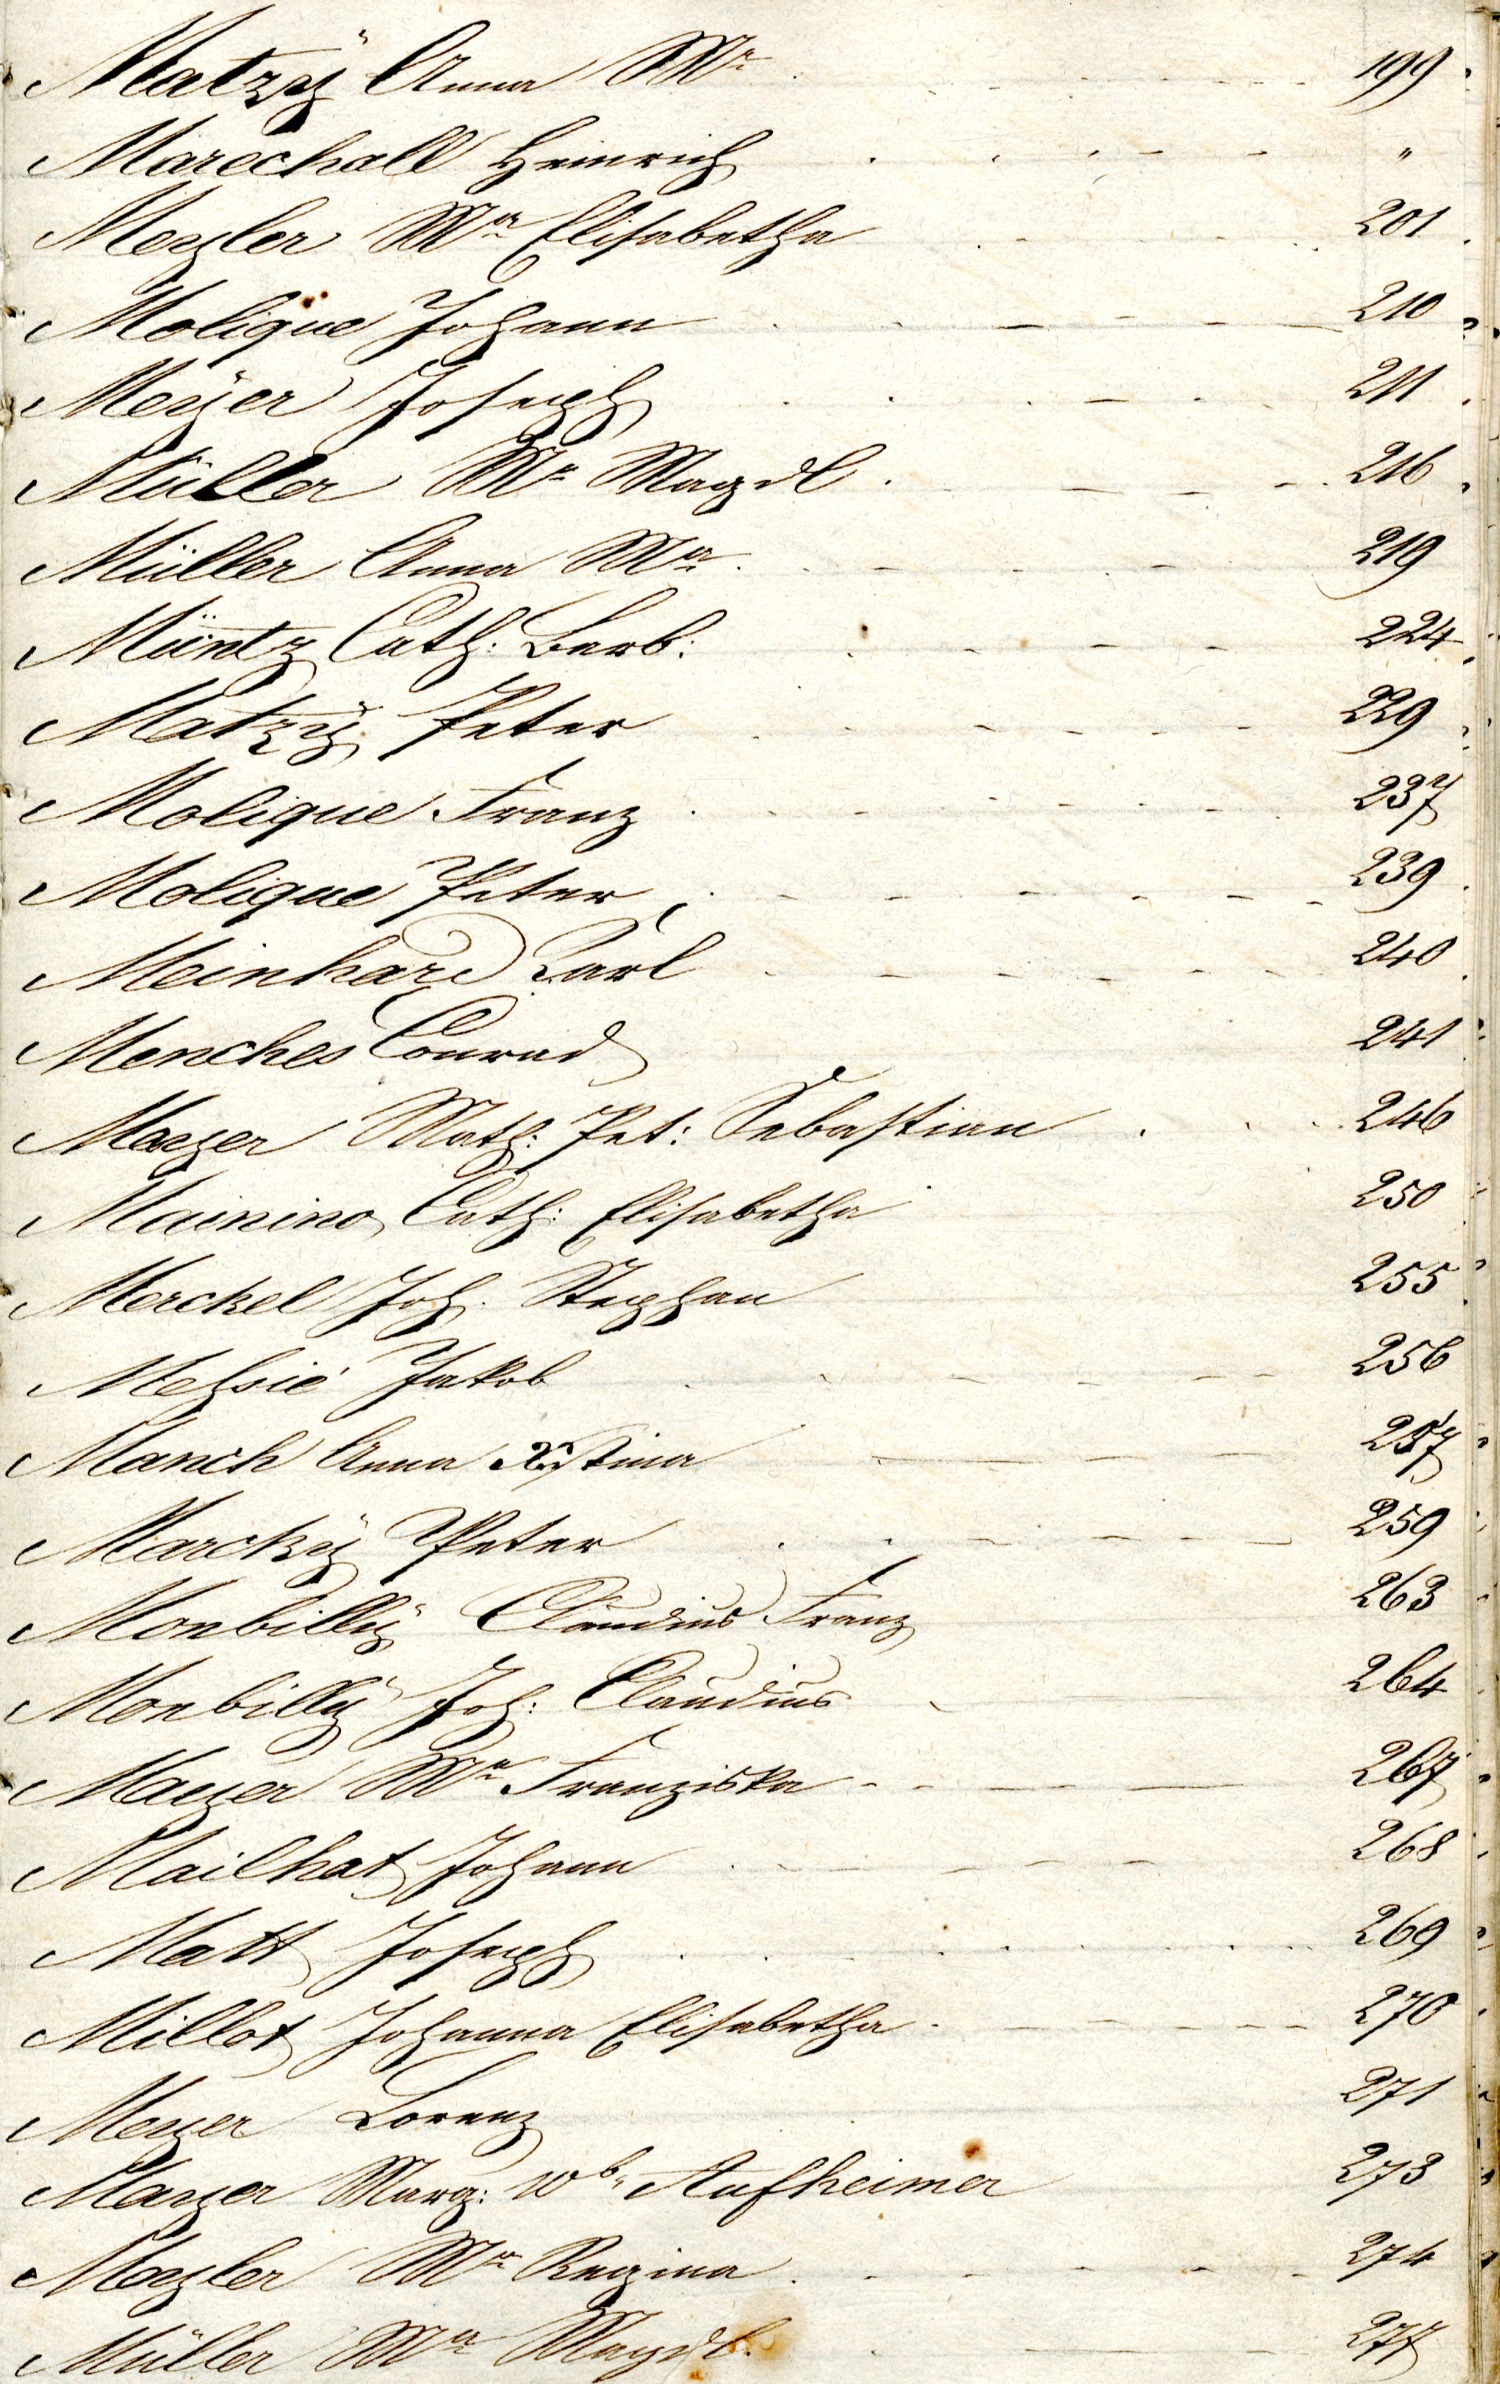 Matzÿ Anna Mª 199
Marechall Heinrich "
Meyler Mª Elisabetha 201
Molique Johann 210
Meÿer Joseph 211
Müller Mª Magdl. 216
Müller Anna Mª 219
Müntz Cath: Barb: 224
Matzÿ Peter 229
Molique Franz 237
Molique Peter 239
Meinhard Carl 240
Menches Conrad 241
Mayer Math: Pet: Sebastian 246
Mainino Cath: Elisabetha 250
Merckel Joh. Stephan 255
Jakob 256
Manch Anna Xstina 257
Marckÿ Peter 259
Monbillÿ Claudius Franz 263
Monbillÿ Joh: Claudius 264
Mayer Mª Franziska 267
Mailhat Johann 268
Matt Joseph 269
Millot Johanna Elisabetha 270
Meyer Lorenz 271
Mayer Marg: Wb. Aufheimer 273
Mª Regina 274
Müller Mª Magdl. 277